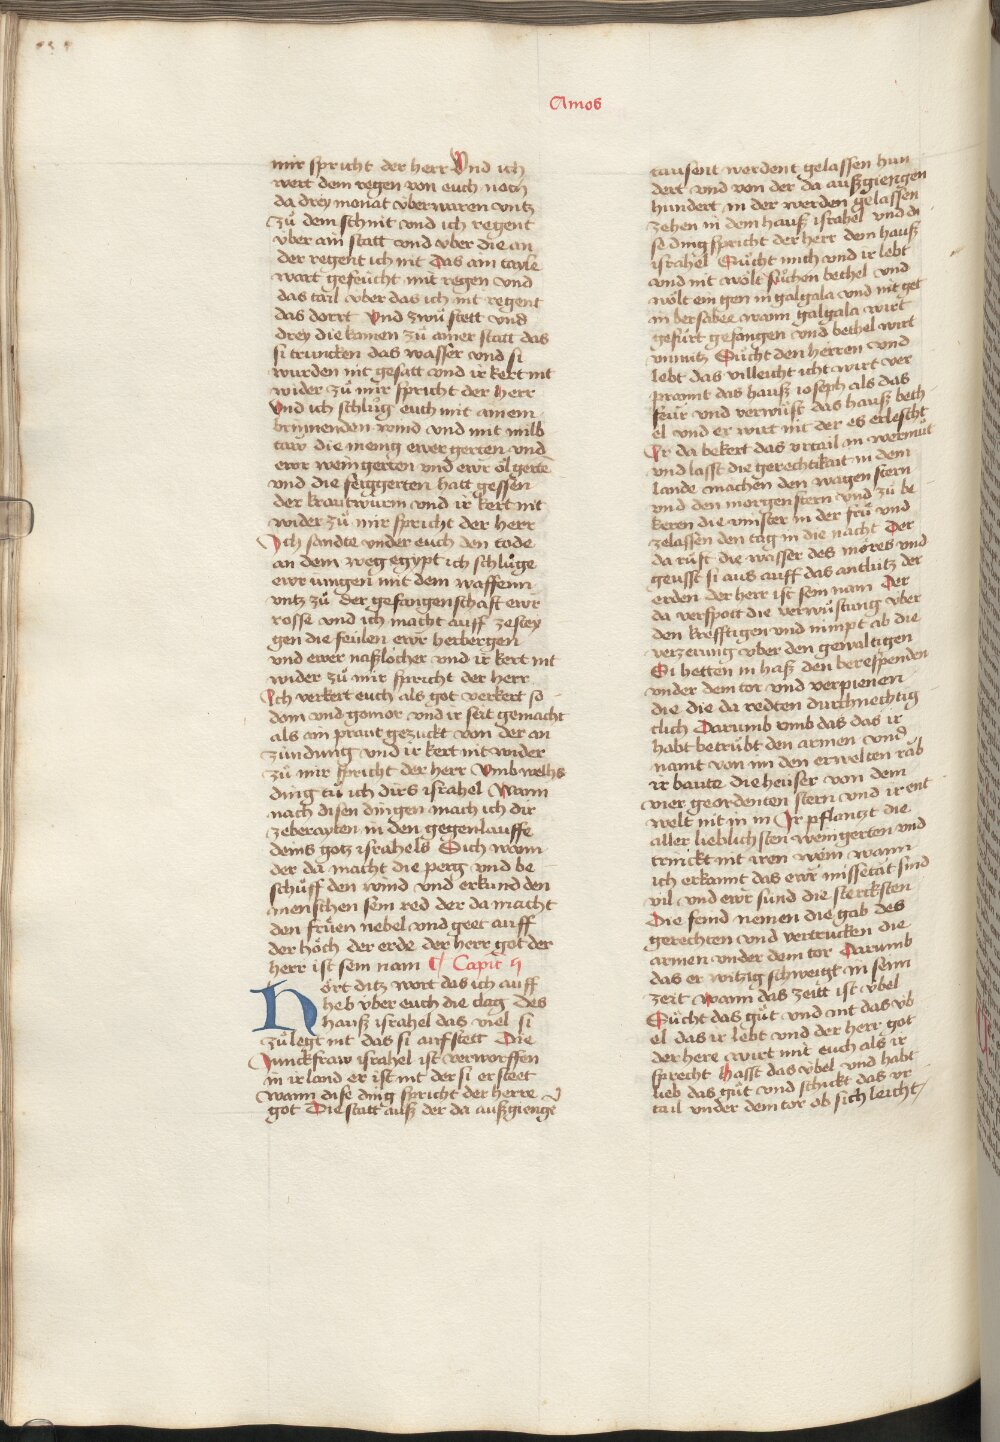 Amos
mir spricht der herr Vnd ich
wert dem regen von euch noch
da drey monat vberwaren vntz
zů dem schnit vnd ich regent
vber ain statt vnd vber die an
der regent ich nit Das ain tayle
wart gefeücht mit regen vnd
das tail vber das ich nit regent
das dorrt Vnd zwů stett vnd
drey die komen zů ainer statt das
si truncken das wasser vnd si
wurden nit gesatt vnd ir kert nit
wider zů mir spricht der herr
Vnd ich schlůg euch mit ainem
brinnenden wind vnd mit milb
taw die menig ewer gerten vnd
ewr weingerten vnd ewr ölgertē
vnd die feiggerten hatt gessen
der krautwurm vnd ir kert nit
wider zů mir spricht der herr
Ich sandte vnder euch den tode
an dem weg egypt ich schlůge
ewr iungen mit dem waffenn
vntz zů der gefangenschaft ewr
rosse vnd ich macht auff zestey
gen die feulen ewr herbergen
vnd ewer naßlöcher vnd ir kert nit
wider zů mir spricht der herr
Ich verkert euch als got verkert so
dom vnd gomor vnd ir seit gemacht
als ain prant gezuckt von der an
zündung vnd ir kert nit wider
zů mir spricht der herr Vmb welhs
ding tů ich dirs israhel Wann
nach disen dingen mach ich dir
zeberayten in den gegenlauffe
deins gotz israhels Sich wann
der da macht die perg vnd be
schůff den wind vnd erkund den
menschen sein red der da macht
den frůen nebel vnd geet auff
der höch der erde der herr got der
herr ist sein nam ¶ Capit͛ v
Hort ditz wort das ich auff
heb vber euch die clag Des
hauß israhel das viel si
zůlegt nit das si aufstett Die
Junckfraw israhel ist verworffen
in ir land er ist nit der si ersteet
wann dise ding spricht der herre
got Die statt auß der da außgienge
tausent werdent gelassen hun
dert vnd von der da außgiengen
hundert in der werden gelassen
zehen in dem hauß israhel vnd di
se ding spricht der herr dem hauß
israhel Sůcht mich vnd ir lebt
vnd nit wölt sůchen bethel vnd
wölt ein gen in galgala vnd nit get
in bersabee wann galgala wirt
gefürt gefangen vnd bethel wirt
vnnutz Sůcht den herren vnd
lebt das villeicht icht wirt ver
prannt das hauß ioseph als das
feür vnd verwüst das hauß beth
el vnd er wirt nit der es erlescht
Ir da bekert das vrtail in wermůt
vnd lasst die gerechtikait in dem
lande machen den wagen stern
vnd den morgenstern vnd zů be
keren die vinster in der frů vnd
zelassen den tag in die nacht Der
da růft die wasser des möres vnd
geusst si aus auff das antlütz der
erden der herr ist sein nam Der
da verspott die verwůstung vber
den krefftigen vnd nimpt ab die
verzerung vber den gewaltigen
Si hetten in haß den berespenden
vnder dem tor vnd verpienen
die die da redten durchnechtig
clich Darumb vmb das das ir
habt betrůbt den armen vnd
namt von im den erwelten rāb
ir baute die heüser von dem
vier geordenten stein vnd ir ent
welt nit in in Ir pflanzt die
aller lieblichsten weingerten vnd
trinckt nit iren wein wann
ich erkannt das ewr missetat sind
vil vnd ewr sünd die stercksten
Die feind nemen die gab des
gerechten vnd vertrucken die
armen vnder dem tor Darumb
das er witzig schweigt in seim
zeit Wann das zeitt ist v̈bel
Sůcht das gůt vnd nit das v̈b
el das ir lebt vnd der herr got
der here wirt mit euch als ir
sprecht Hasst das v̈bel vnd habt
lieb das gůt vnd schickt das vr
tail vnder dem tor ob sich leicht